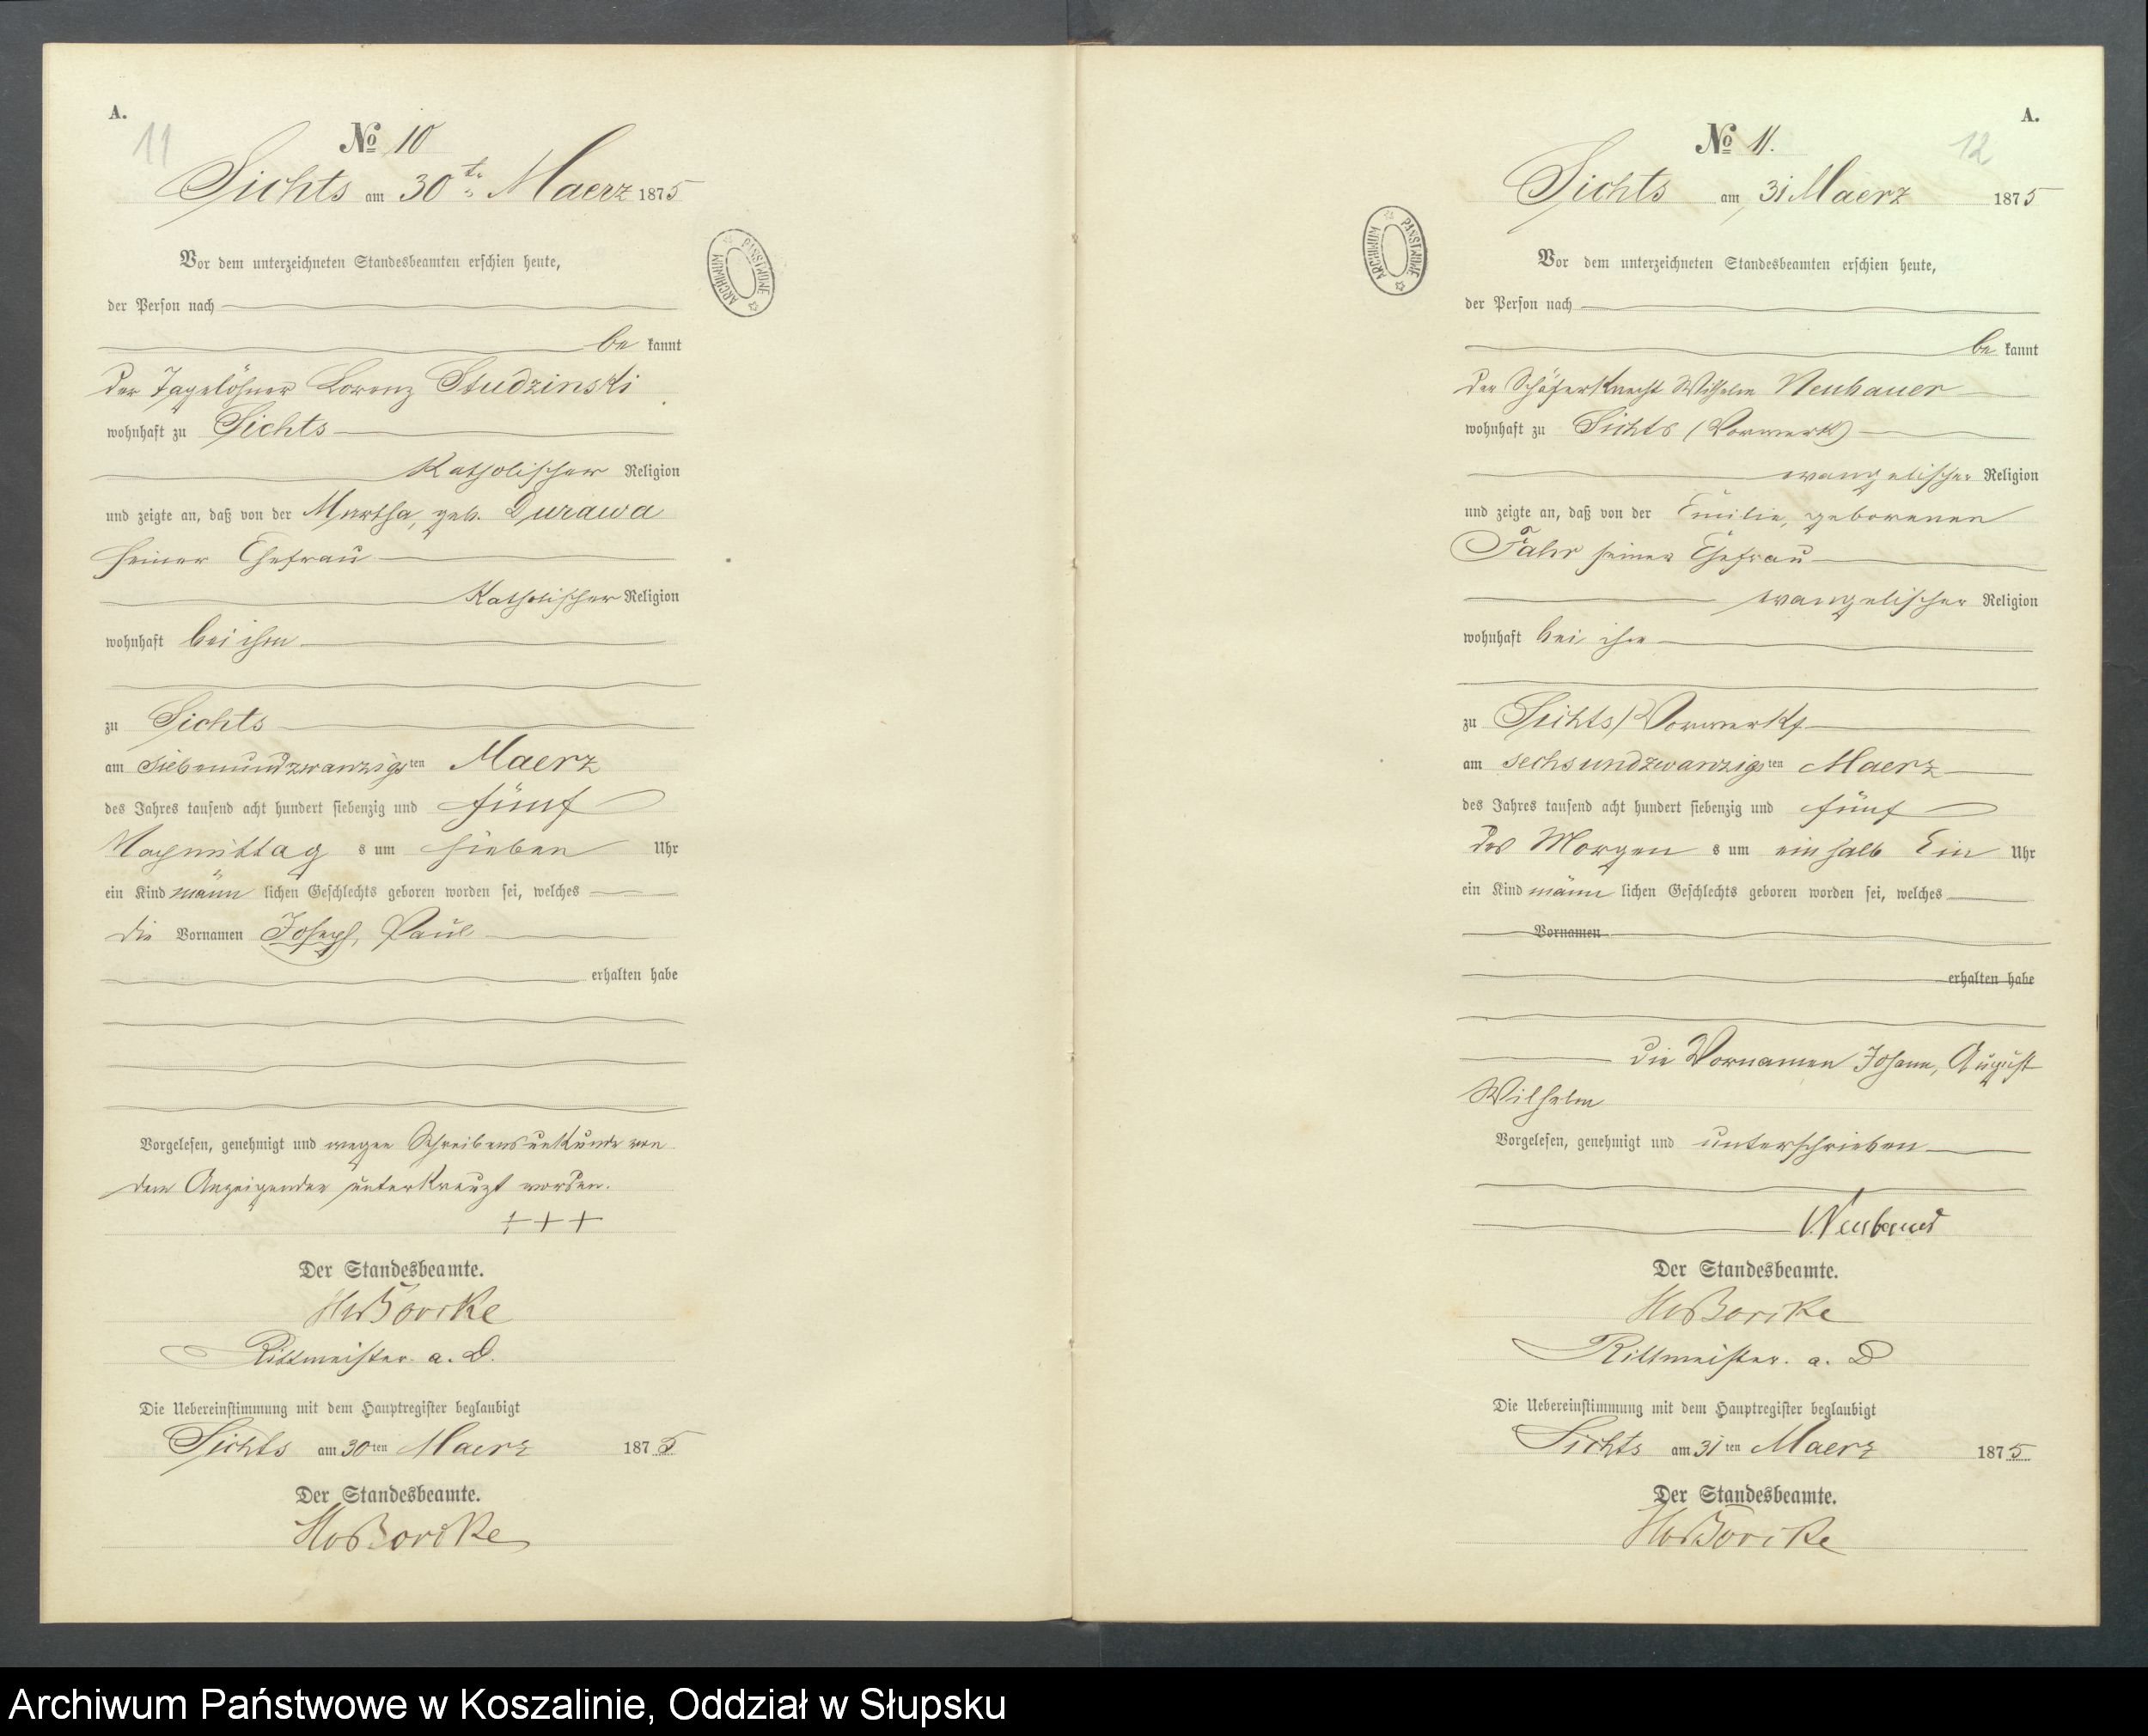 A.
11
No 10
Sichts am 30te Maerz 1875
Vor dem unterzeichneten Standesbeamten erschien heute,
der Person nach
be kannt
der Tagelöhner Lorenz Studzinski
wohnhaft zu Sichts
Katholischer Religion
und zeigte an, daß von der Martha, geb. Durawa
seiner Ehefrau
Katholischer Religion
wohnhaft bei ihm
zu Sichts
am siebenundzwanzigsten Maerz
des Jahres tausend acht hundert siebenzig und fünf
Nachmittag s um sieben Uhr
ein Kind männ lichen Geschlechts geboren worden sei, welches
die Vornamen Joseph, Paul
erhalten habe
Vorgelesen, genehmigt und wegen Schreibensunkunde von
dem Anzeigenden unterkreuzt worden.
+++
Der Standesbeamte.
HvBorcke
Rittmeister a. D.
Die Uebereinstimmung mit dem Hauptregister beglaubigt
Sichts am 30ten Maerz 1875
Der Standesbeamte.
HvBorcke
ARCHIWUM PAŃSTWOWE
A.
12
No 11.
Sichts am 31 Maerz 1875
Vor dem unterzeichneten Standesbeamten erschien heute,
der Person nach
be kannt
der Schäferknecht Wilhelm Neubauer
wohnhaft zu Sichts (Vorwerk)
evangelischer Religion
und zeigte an, daß von der Emilie, geborenen
Fahr seiner Ehefrau
evangelischer Religion
wohnhaft bei ihm
zu Sichts (Vorwerk)
am sechsundzwanzigsten Maerz
des Jahres tausend acht hundert siebenzig und fünf
des Morgen s um ein halb Ein Uhr
ein Kind männ lichen Geschlechts geboren worden sei, welches
Vornamen
erhalten habe
die Vornamen Johann, August
Wilhelm
Vorgelesen, genehmigt und unterschrieben
W. Neubauer
Der Standesbeamte.
HvBorcke
Rittmeister. a. D
Die Uebereinstimmung mit dem Hauptregister beglaubigt
Sichts am 31ten Maerz 1875
Der Standesbeamte.
HvBorcke
ARCHIWUM PAŃSTWOWE
Archiwum Państwowe w Koszalinie, Oddział w Słupsku